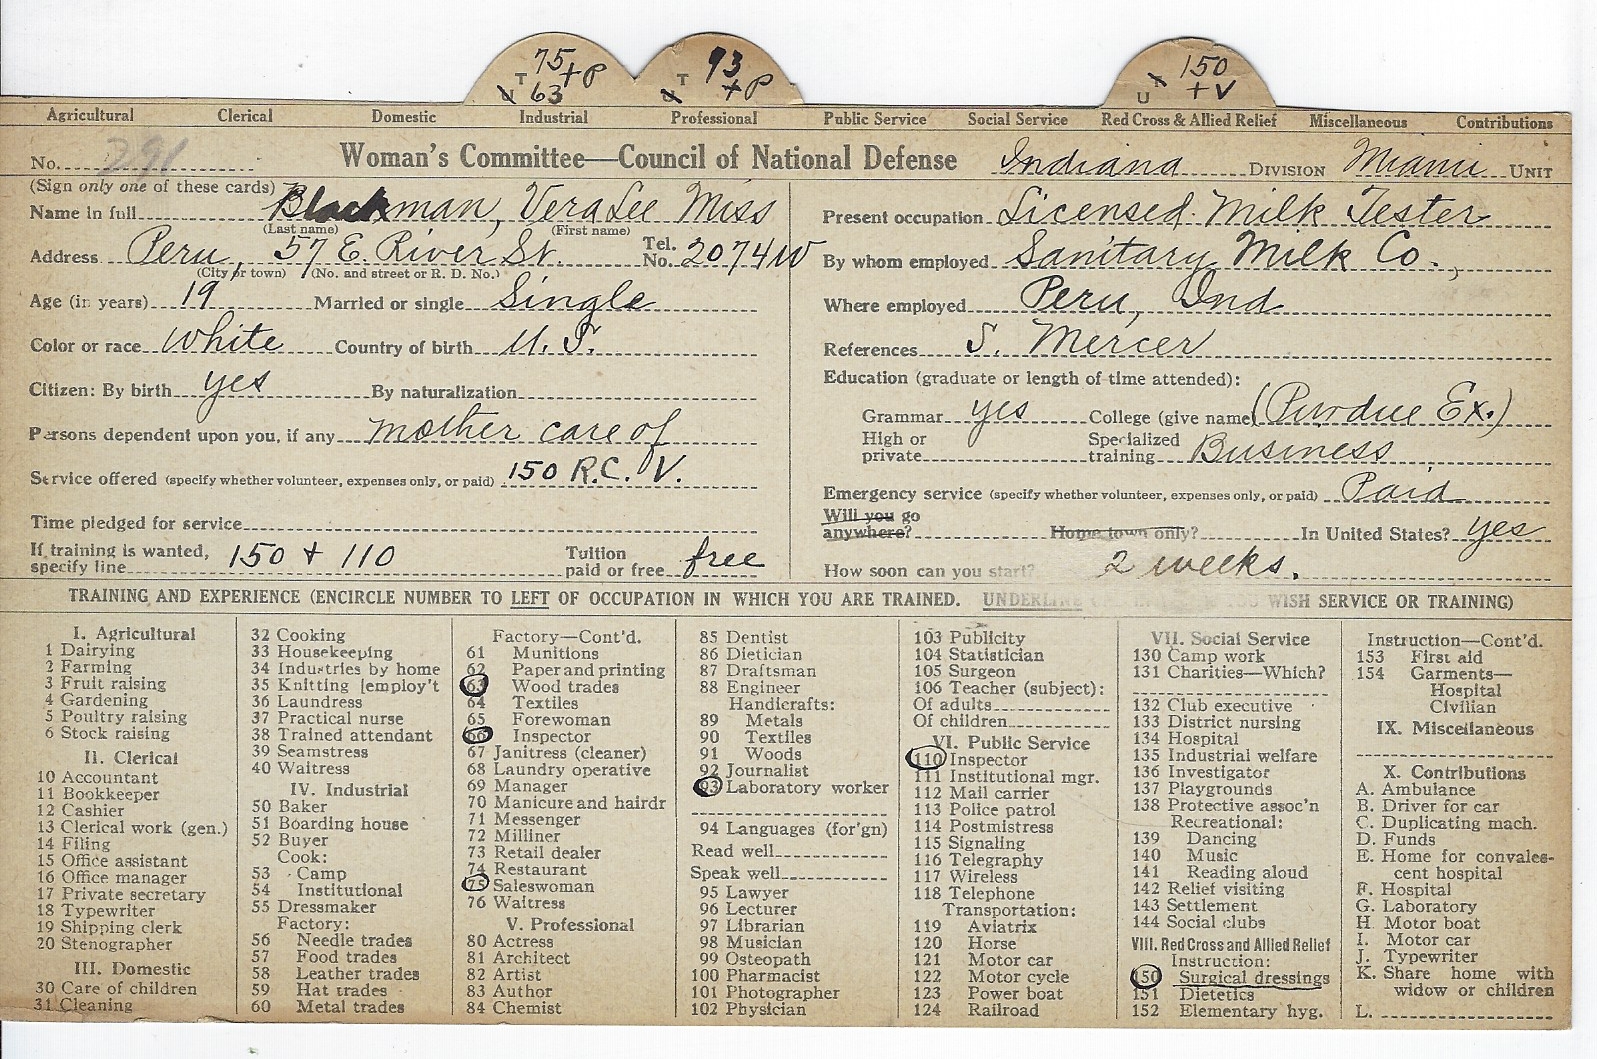 75 93 150
T +P T +P U + V
63
Agricultural Clerical Domestic Industrial Professional Public Service Social Service Red Cross & Allied Relief Miscellaneous Contributions
No. 291 Woman's Committee—Council of National Defense Indiana DIVISION Miami UNIT
(Sign only one of these cards)
Name in full Blackman, Vera Lee Miss
(Last name) (First name)
Address Peru, 57 E. River St. Tel. No. 2074W
(City or town) (No. and street or R. D. No.)
Age (in years) 19 Married or single Single
Color or race White Country of birth U. S.
Citizen: By birth yes By naturalization
Persons dependent upon you, if any mother care of
Service offered (specify whether volunteer, expenses only, or paid) 150 R.C. V.
Time pledged for service
If training is wanted, specify line 150 + 110 Tuition paid or free free
Present occupation Licensed Milk Tester
By whom employed Sanitary Milk Co.,
Where employed Peru, Ind
References S. Mercer
Education (graduate or length of time attended):
Grammar yes College (give name) (Purdue Ex.)
High or private Specialized training Business
Emergency service (specify whether volunteer, expenses only, or paid) Paid
Will you go anywhere? Home town only? In United States? yes
How soon can you start? 2 weeks.
TRAINING AND EXPERIENCE (ENCIRCLE NUMBER TO LEFT OF OCCUPATION IN WHICH YOU ARE TRAINED. UNDERLINE WISH SERVICE OR TRAINING)
I. Agricultural
1 Dairying
2 Farming
3 Fruit raising
4 Gardening
5 Poultry raising
6 Stock raising
II. Clerical
10 Accountant
11 Bookkeeper
12 Cashier
13 Clerical work (gen.)
14 Filing
15 Office assistant
16 Office manager
17 Private secretary
18 Typewriter
19 Shipping clerk
20 Stenographer
III. Domestic
30 Care of children
31 Cleaning
32 Cooking
33 Housekeeping
34 Industries by home
35 Knitting [employ't
36 Laundress
37 Practical nurse
38 Trained attendant
39 Seamstress
40 Waitress
IV. Industrial
50 Baker
51 Boarding house
52 Buyer
Cook:
53 Camp
54 Institutional
55 Dressmaker
Factory:
56 Needle trades
57 Food trades
58 Leather trades
59 Hat trades
60 Metal trades
Factory—Cont'd.
61 Munitions
62 Paper and printing
63 Wood trades
64 Textiles
65 Forewoman
66 Inspector
67 Janitress (cleaner)
68 Laundry operative
69 Manager
70 Manicure and hairdr
71 Messenger
72 Milliner
73 Retail dealer
74 Restaurant
75 Saleswoman
76 Waitress
V. Professional
80 Actress
81 Architect
82 Artist
83 Author
84 Chemist
85 Dentist
86 Dietician
87 Draftsman
88 Engineer
Handicrafts:
89 Metals
90 Textiles
91 Woods
92 Journalist
93 Laboratory worker
94 Languages (for'gn)
Read well
Speak well
95 Lawyer
96 Lecturer
97 Librarian
98 Musician
99 Osteopath
100 Pharmacist
101 Photographer
102 Physician
103 Publicity
104 Statistician
105 Surgeon
106 Teacher (subject):
Of adults
Of children
VI. Public Service
110 Inspector
111 Institutional mgr.
112 Mail carrier
113 Police patrol
114 Postmistress
115 Signaling
116 Telegraphy
117 Wireless
118 Telephone
Transportation:
119 Aviatrix
120 Horse
121 Motor car
122 Motor cycle
123 Power boat
124 Railroad
VII. Social Service
130 Camp work
131 Charities—Which?
132 Club executive
133 District nursing
134 Hospital
135 Industrial welfare
136 Investigator
137 Playgrounds
138 Protective assoc'n
Recreational:
139 Dancing
140 Music
141 Reading aloud
142 Relief visiting
143 Settlement
144 Social clubs
VIII. Red Cross and Allied Relief
Instruction:
150 Surgical dressings
151 Dietetics
152 Elementary hyg.
Instruction—Cont'd.
153 First aid
154 Garments—
Hospital
Civilian
IX. Miscellaneous
X. Contributions
A. Ambulance
B. Driver for car
C. Duplicating mach.
D. Funds
E. Home for convales-
cent hospital
F. Hospital
G. Laboratory
H. Motor boat
I. Motor car
J. Typewriter
K. Share home with
widow or children
L.